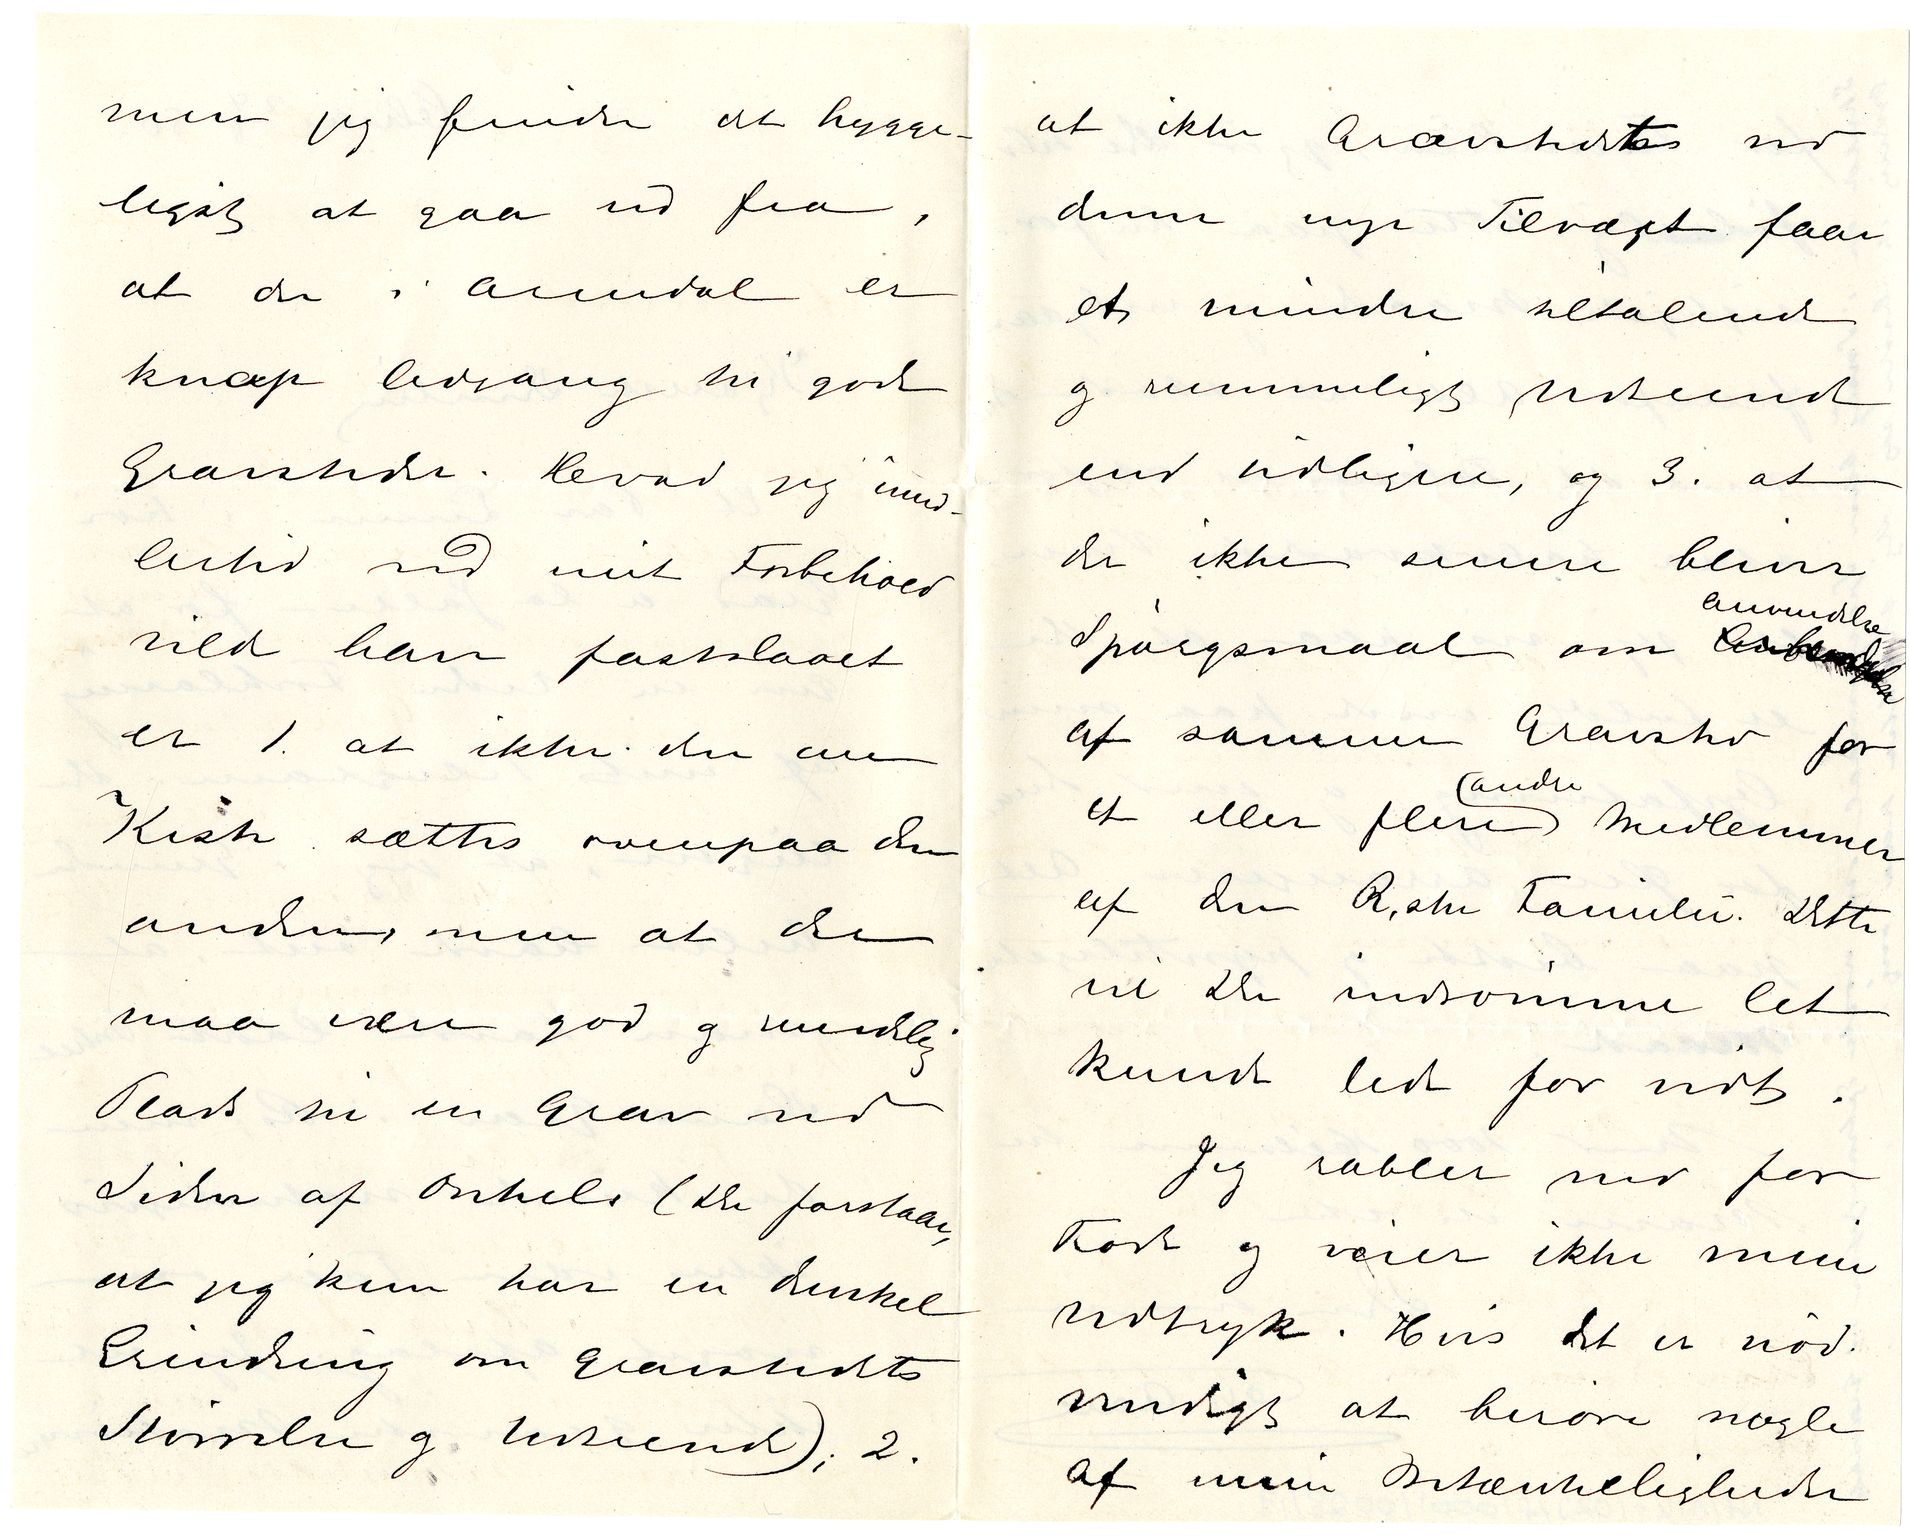 men jeg finder det hygge-
ligst at gaa ud fra,
at der i Arendal er
knap Adgang til gode
Gravsteder. Hvad jeg imid-
lertid ved mit Forbehold
vilde have fastslaaet
er 1. at ikke den ene
Kiste sættes ovenpaa den
anden, men at der
maa være god og rundelig
Plads til en Grav ved
Siden af Onkels (De forstaar,
at jeg kun har en dunkel
Erindring om Gravstedets
Störrelse og Udseende); 2.
at ikke Gravstedet ved
denne nye Tilvægt faar
et mindre tiltalende
og rummeligt Udseende
end tidligere, og 3. at
der ikke senere bliver
anvendelse
Spörgsmaal om
af samme Gravsted for
andre
et eller flere Medlemmer
af den R,ske Familie. Dette
vil De indrömme let
kunde lede for vidt.
Jeg rabler ned for
Fode og veier ikke mine
Udtryk. Hvis det er nöd-
vendigt at beröre nogle
af mine Betænkeligheder